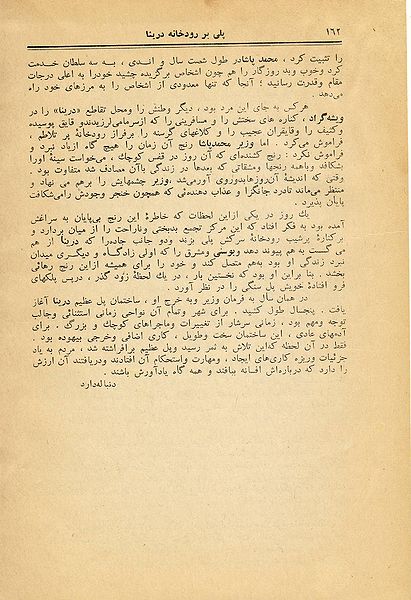 ۱۶۲ پلی بر رودخانه درینا
را تثبیت کرد ، محمد پاشادر طول شصت سال و اندی ، به سه سلطان خدمت
کرد وخوب وبد روزگار را هم چون اشخاص برگزیده چشید خودرا به اعلی درجات
مقام وقدرت رسانید ؛ آنجا که تنها معدودی از اشخاص را به مرزهای خود راه
می‌دهد .
هرکس به جای این مرد بود ، دیگر وطنش را ومحل تقاطع «درینا» را در
ویشه‌گراد ، کناره های سختش را و مسافرینی را که ازسرمامی‌لرزیدندو قایق پوسیده
وکثیف را وقایقران عجیب را و کلاغهای گرسنه را برفراز رودخانهٔ پر تلاطم ،
فراموش می‌کرد . اما وزیر محمدپاشا رنج آن زمان را هیچ گاه ازیاد نبرد و
فراموش نکرد : رنج کشنده‌ای که آن روز در قفس کوچك ، می‌خواست سینهٔ اورا
بشکافد وباهمه رنجها ومشقاتی که بعدها در زندگی باآن مصادف شد متفاوت بود .
وقتی که اندیشهٔ آن‌روزهابدوروی آورمی‌شد ،وزیر چشمهایش را برهم می نهاد و
منتظر می‌ماند تادرد جانگزا و عذاب دهنده‌ئی که همچون خنجر وجودش رامی‌شکافت
پایان پذیرد .
یك روز در یکی ازاین لحظات که خاطرهٔ این رنج بی‌پایان به سراغش
آمده بود به فکر افتاد که این مرکز تجمع بدبختی وناراحت را از میان بردارد و
بر کنارهٔ پرشیب رودخانهٔ سرکش پلی بزند ودو جانب جاده‌را که درینا از هم
می گست به هم پیوند دهد وبوسنی ومشرق را که اولی زادگاه و دیگری میدان
نبرد زندگی او بود به‌هم متصل کند و خود را برای همیشه ازاین رنج رهائی
بخشد . بنا براین او بود که نخستین بار ، در یك لحظهٔ زود گذر ، درپس پلکهای
فرو افتادهٔ خویش پل سنگی را در نظر آورد .
در همان سال به فرمان وزیر وبه خرج او ، ساختمان پل عظیم درینا آغاز
یافت . پنجسال طول کشید . برای شهر وتمام آن نواحی زمانی استثنائی وجالب
توجه ومهم بود ، زمانی سرشار از تغییرات وماجراهای کوچك و بزرگ . برای
آدمهای عادی ، این ساختمان سخت وطویل ، کاری اضافی وخرجی بیهوده بود .
فقط در آن لحظه که‌این تلاش به ثمر رسید وپل عظیم برافراشته شد ، مردم به یاد
جزئیات وریزه کاری‌های ایجاد ، ومهارت واستحکام آن افتادند ودریافتند آن ارزش
را دارد که درباره‌اش افسانه ببافند و همه گاه یادآورش باشند .
دنباله‌دارد